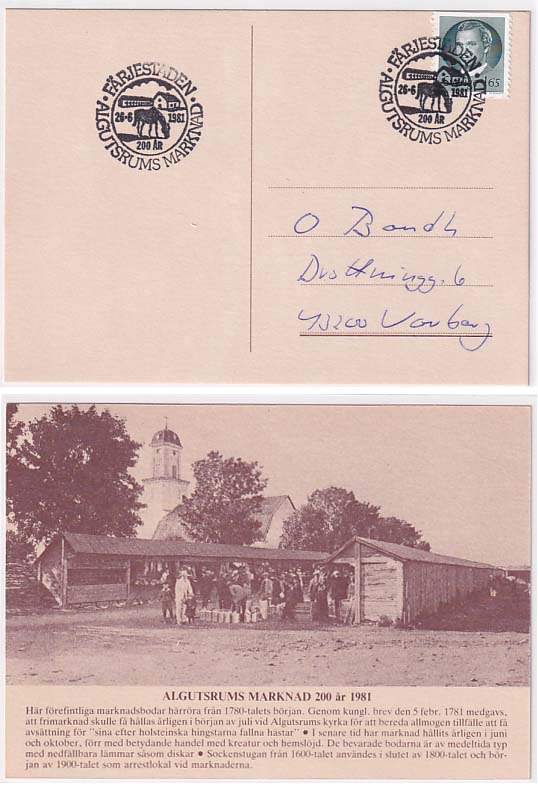 FÄRJESTADEN
26-6 1981
200 ÅR
ALGUTSRUMS MARKNAD
FÄRJESTADEN
26-6 1981
200 ÅR
ALGUTSRUMS MARKNAD
165
O Bandh
Drottningg. 6
43200 Varberg
ALGUTSRUMS MARKNAD 200 år 1981
Här förefintliga marknadsbodar härröra från 1780-talets början. Genom kungl. brev den 5 febr. 1781 medgavs,
att frimarknad skulle få hållas årligen i början av juli vid Algutsrums kyrka för att bereda allmogen tillfälle att få
avsättning för "sina efter holsteinska hingstarna fallna hästar" ● I senare tid har marknad hållits årligen i juni
och oktober, förr med betydande handel med kreatur och hemslöjd. De bevarade bodarna är av medeltida typ
med nedfällbara lämmar såsom diskar ● Sockenstugan från 1600-talet användes i slutet av 1800-talet och bör-
jan av 1900-talet som arrestlokal vid marknaderna.